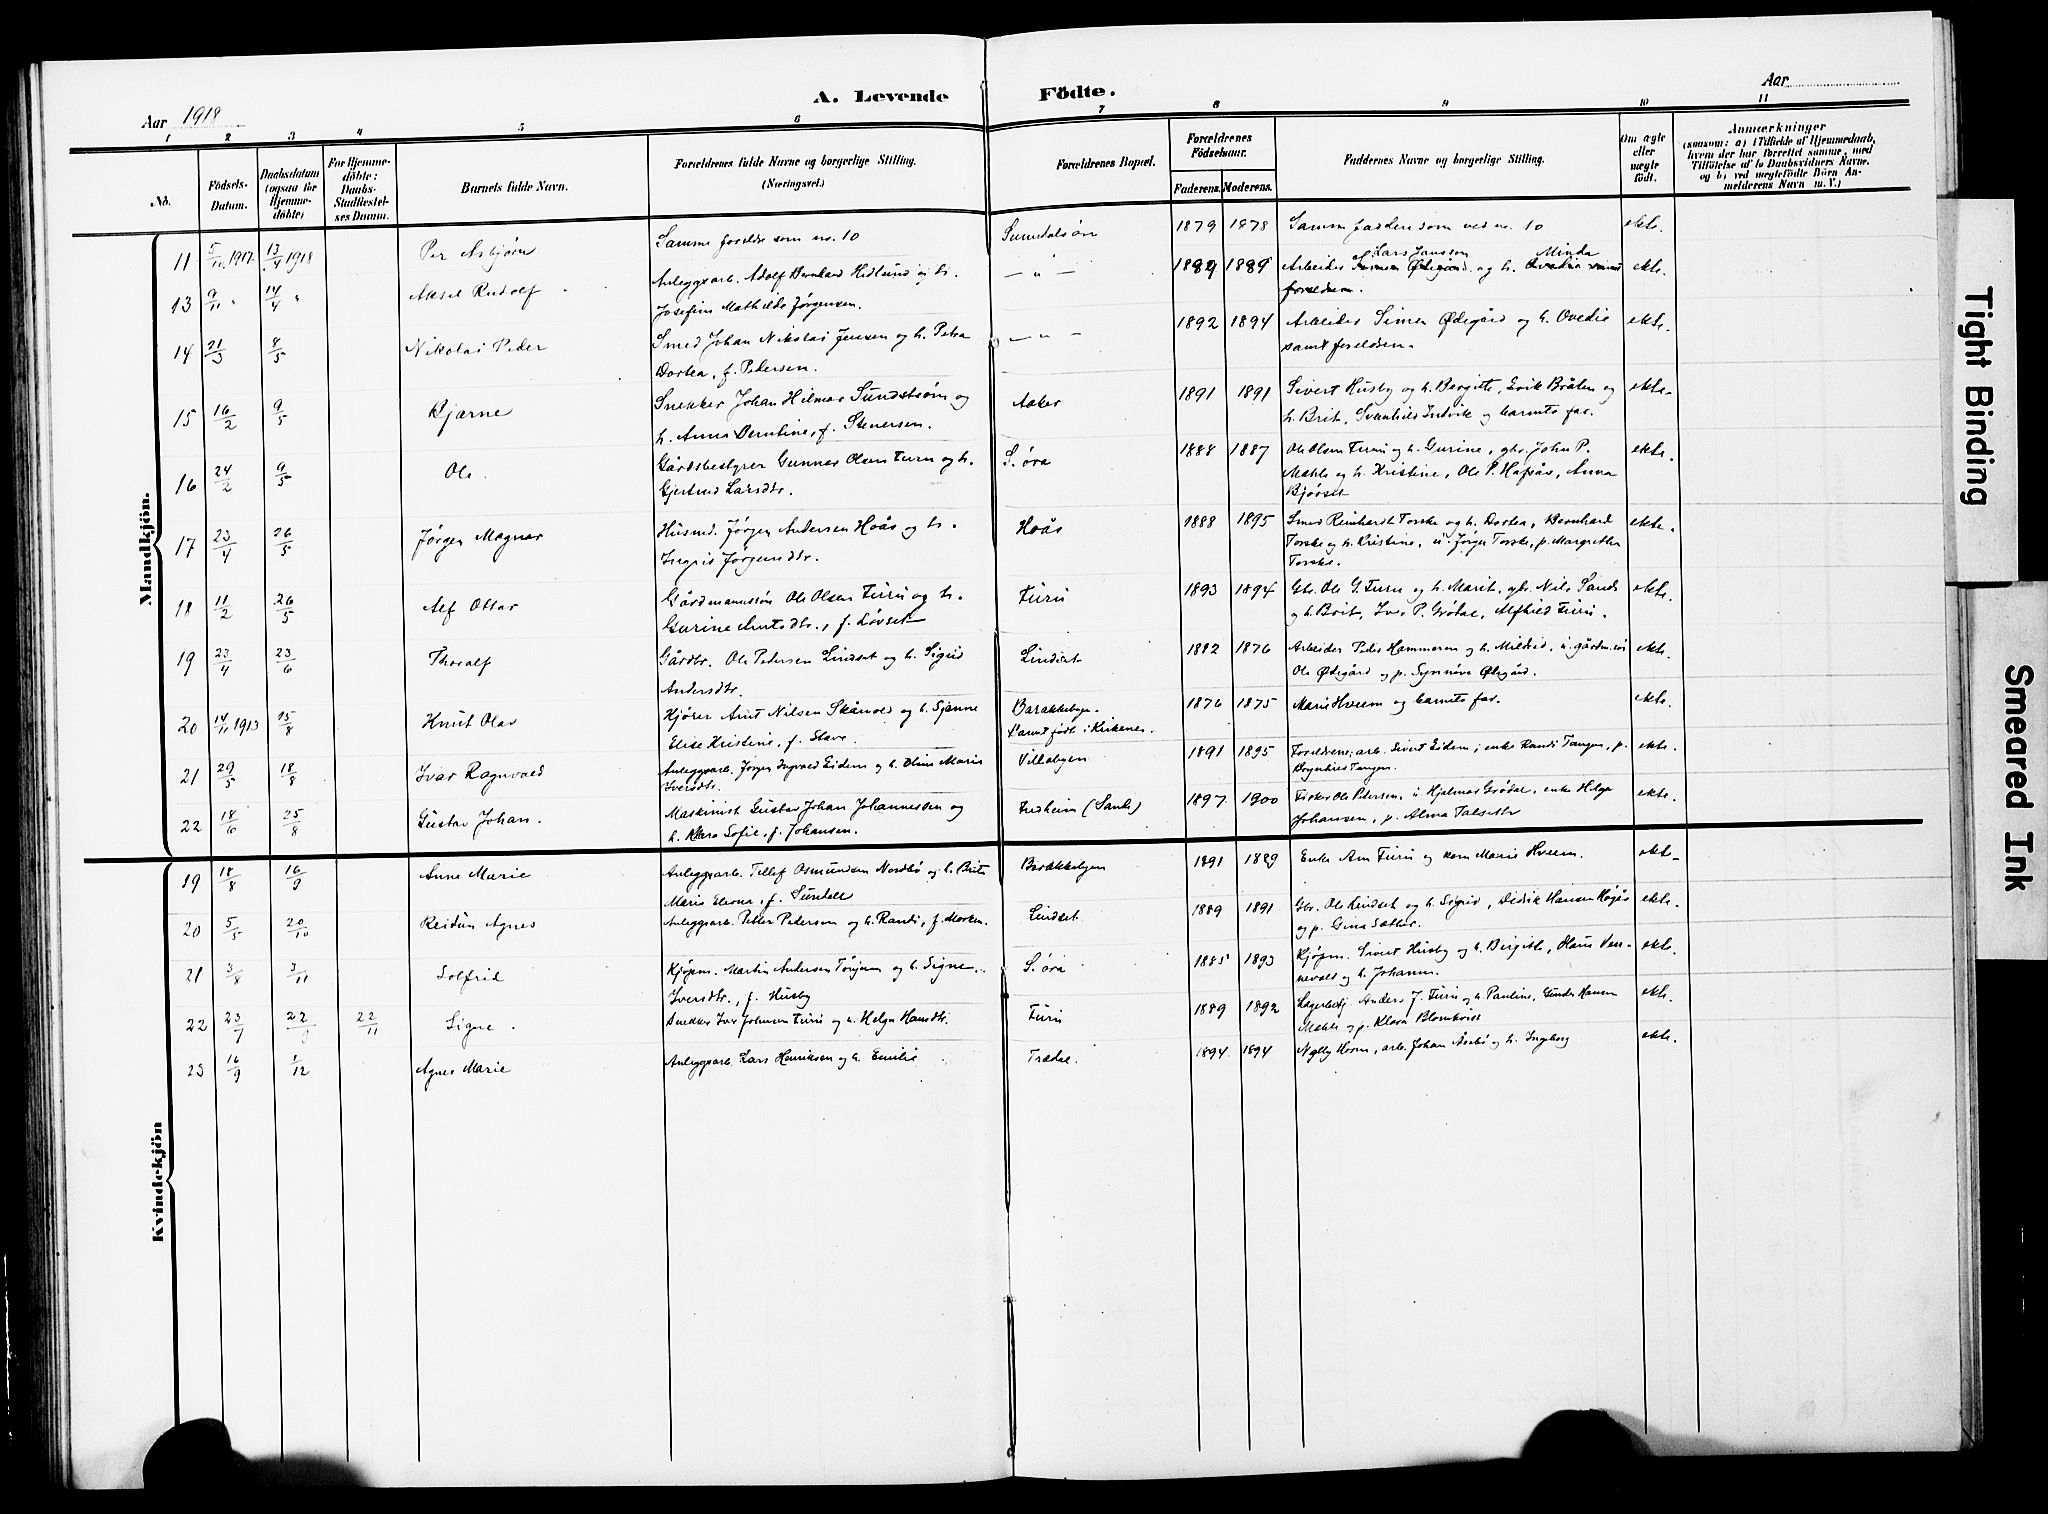 Aar 1918
A. Levende Födte.
Aar
1 2 3 4 5 6 7 8 9 10 11
No.
Födsels-Datum.
Daabsdatum (ogsaa for Hjemmedöbte)
For Hjemmedöbte: Daabs-Stadfæstelses Datum.
Barnets fulde Navn.
Forældrenes fulde Navne og borgerlige Stilling. (Næringsvei.)
Forældrenes Bopæl.
Forældrenes Födselsaar.
Faderens. Moderens.
Faddernes Navne og borgerlige Stilling.
Om ægte eller uægte født.
Anmærkninger (saasom: a) i Tilfælde af Hjemmedaab, hvem der har forrettet samme, med Tilföielse af to Daabsvidners Navne, og b) ved uægtefödte Börn Anmelderens Navn m. V.)
Mandkjön.
11 5/11 1917 13/4 1918 Per Asbjørn Samme foreldre som no. 10 Sunndalsøra 1879 1878 Samme faddere som ved no. 10 ekte.
13 9/11 " 14/4 " Aksel Rudolf Anleggsarb. Adolf Bernhard Hedlund og h. Josefine Mathilde Jørgensen. — " — 1889 Arbeider Lars Jansson og h. Minda ekte.
14 21/3 8/5 Nikolai Peder Smed Johan Nikolai Jensen og h. Petra Dortea, f. Pedersen. — " — 1892 1894 Arbeider Simen Ødegård og h. Ovedie samt foreldren. ekte.
15 16/2 9/5 Bjarne Snekker Johan Hilmar Sundstrøm og h. Anna Berntine, f. Stenersen. Aaker 1891 1891 Sivert Husby og h. Bergitte, Erik Bråten og h. Brit, Svanhild Indvik og barnets far. ekte.
16 24/2 9/5 Ole. Gårdsbestyrer Gunnar Olsen Furu og h. Gjertrud Larsdtr. S. øra 1888 1887 Ole Olsen Furu og h. Gurine, gbr. John P. Mæhle og h. Kristine, Ole P. Hafsås, Anna Bjørset ekte.
17 23/4 26/5 Jørgen Magnar Husmd. Jørgen Andersen Hoås og h. Ingris Jørgensdtr. Hoås 1888 1895 Smed Reinhardt Torske og h. Dortea, Bernhard Torske og h. Kristine, u. Jørgen Torske, p. Margrethe Torske. ekte.
18 11/2 26/5 Alf Ottar Gårdmannssøn Ole Olsen Furu og h. Gurine Arntsdtr., f. Løvset Furu 1893 1894 Gbr. Ole G. Furu og h. Marit, gbr. Nils Sande og h. Brit, Iver P. Grødal, Alfhild Furu. ekte.
19 23/4 23/6 Thoralf Gårdbr. Ole Pedersen Lindset og h. Sigrid Andersdtr. Lindset 1882 1876 Arbeider Peder Hammeren og h. Mildrid, u. gårdm.søn Ole Ødegård og p. Synnøve Ødegård. ekte.
20 14/11 1913 15/8 Knut Olav Kjører Arnt Nilsen Skårvold og h. Sjanne Elise Kristine, f. Stave. Barakkebyen. Barnet født i Kirkenes. 1876 1875 Marie Hveem og barnets far. ekte.
21 29/5 18/8 Ivar Ragnvald Anleggsarb. Jørgen Ingvald Eidem og h. Oline Marie Iversdtr. Villabyen 1891 1895 Foreldrene; arb. Sivert Eidem; enke Randi Tangen, p. Borghild Tangen ekte.
22 18/6 25/8 Gustav Johan. Maskinist Gustav Johan Johannessen og h. Klara Sofie, f. Johansen. Fredheim (Sande) 1897 1900 Fisker Ole Petersen, u. Hjalmar Grødal, enke Helga Johansen, p. Alma Talseth ekte.
Kvindekjön
19 18/8 16/9 Anne Marie Anleggsarb. Tellef Osmundsen Nordbø og h. Brite Marie Elerna, f. Sundell Barakkebyen 1891 1889 Enke Ane Furu og kona Marie Hveem. ekte
20 5/5 20/10 Reidun Agnes Anleggsarb. Peter Petersen og h. Randi, f. Morken. Lindset 1889 1891 Gbr. Ole Lindset og h. Sigrid, Didrik Hansen Høgås og p. Gina Sæther. ekte.
21 3/8 3/11 Solfrid Kjøpm. Martin Andersen Tønjum og h. Signe Iversdtr., f. Husby S. øra 1885 1893 Kjøpm. Sivert Husby og h. Birgitte, Hans Vennevold og h. Johanne. ekte.
22 23/7 22/9 22/11 Signe. Snekker Iver Johnsen Furu og h. Helga Hansdtr. Furu 1889 1892 Lagerbetj. Anders J. Furu og h. Pauline, Gunder Hansen Mæhle og p. Klara Blomkvist ekte.
23 16/9 1/12 Agnes Marie Anleggsarb. Lars Henriksen og h. Emilie Trædal. 1894. 1894 Nylly Horm, arb. Johan Åsebø og h. Ingeborg ekte.
Tight Binding
Smeared Ink